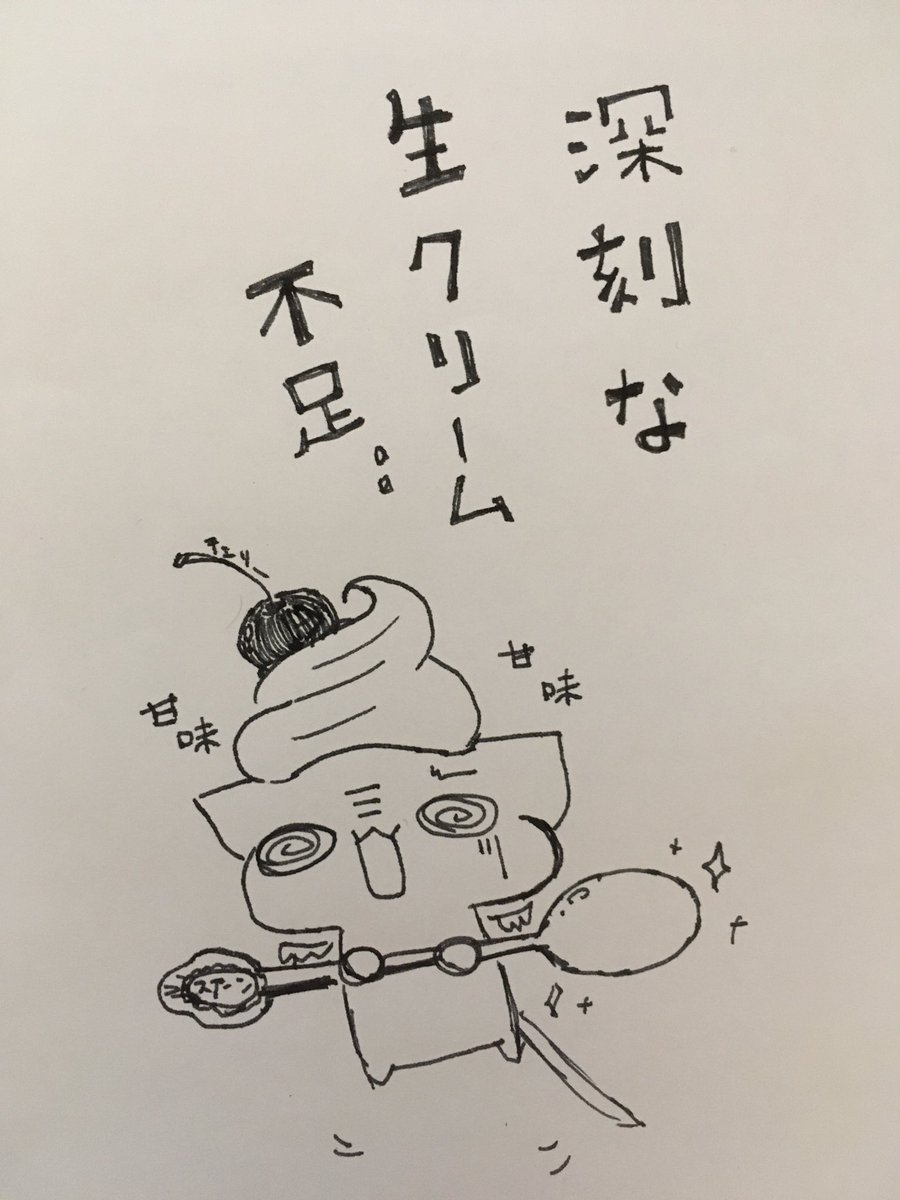 深刻な
生クリーム
不足..
チェリー
甘味
甘味
スプーン